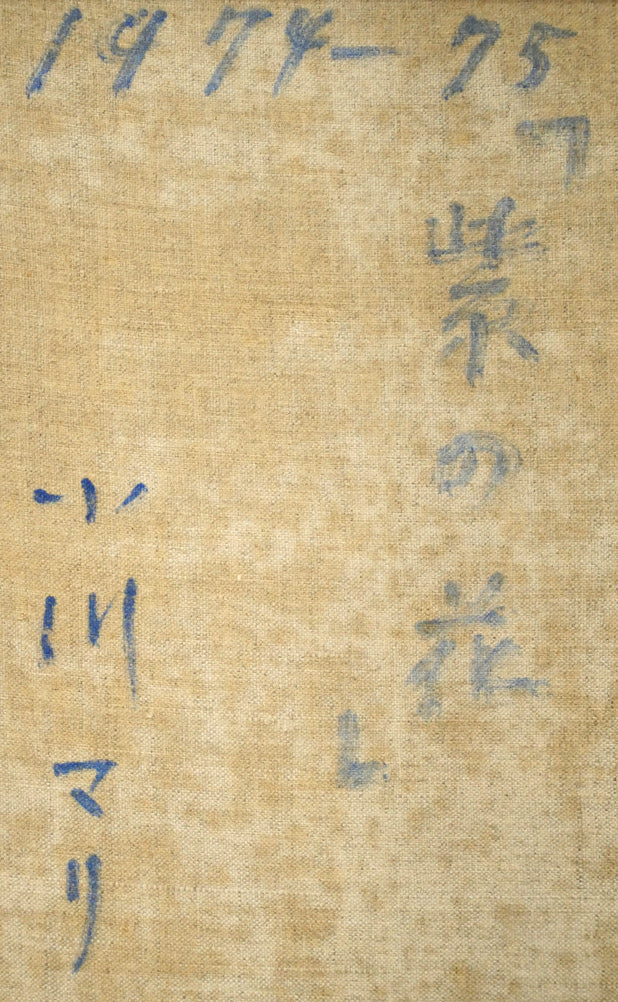 1974-75
「紫の花」
小川マリ